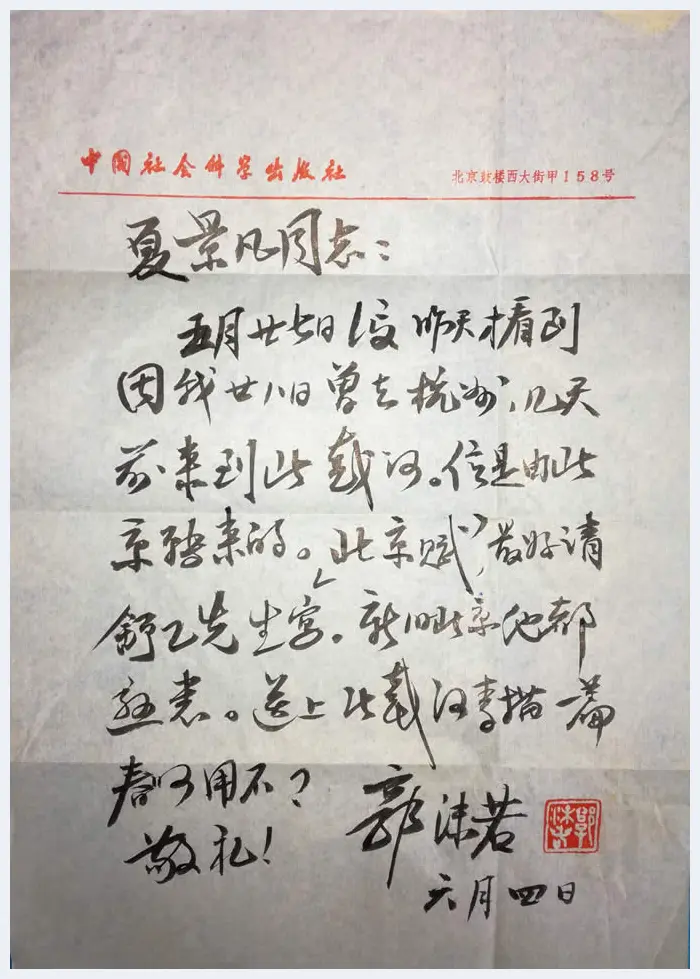 中国社会科学出版社 北京鼓楼西大街甲158号
夏景凡同志：
五月廿七日信昨天才看到
因我廿八日曾去杭州，几天
前来到北戴河。信是由北
京转来的。“北京赋”，最好请
舒乙先生写。新旧北京他都
熟悉。送上北戴河素描一篇
看可用不？
敬礼！
郭沫若
郭沫若
六月四日